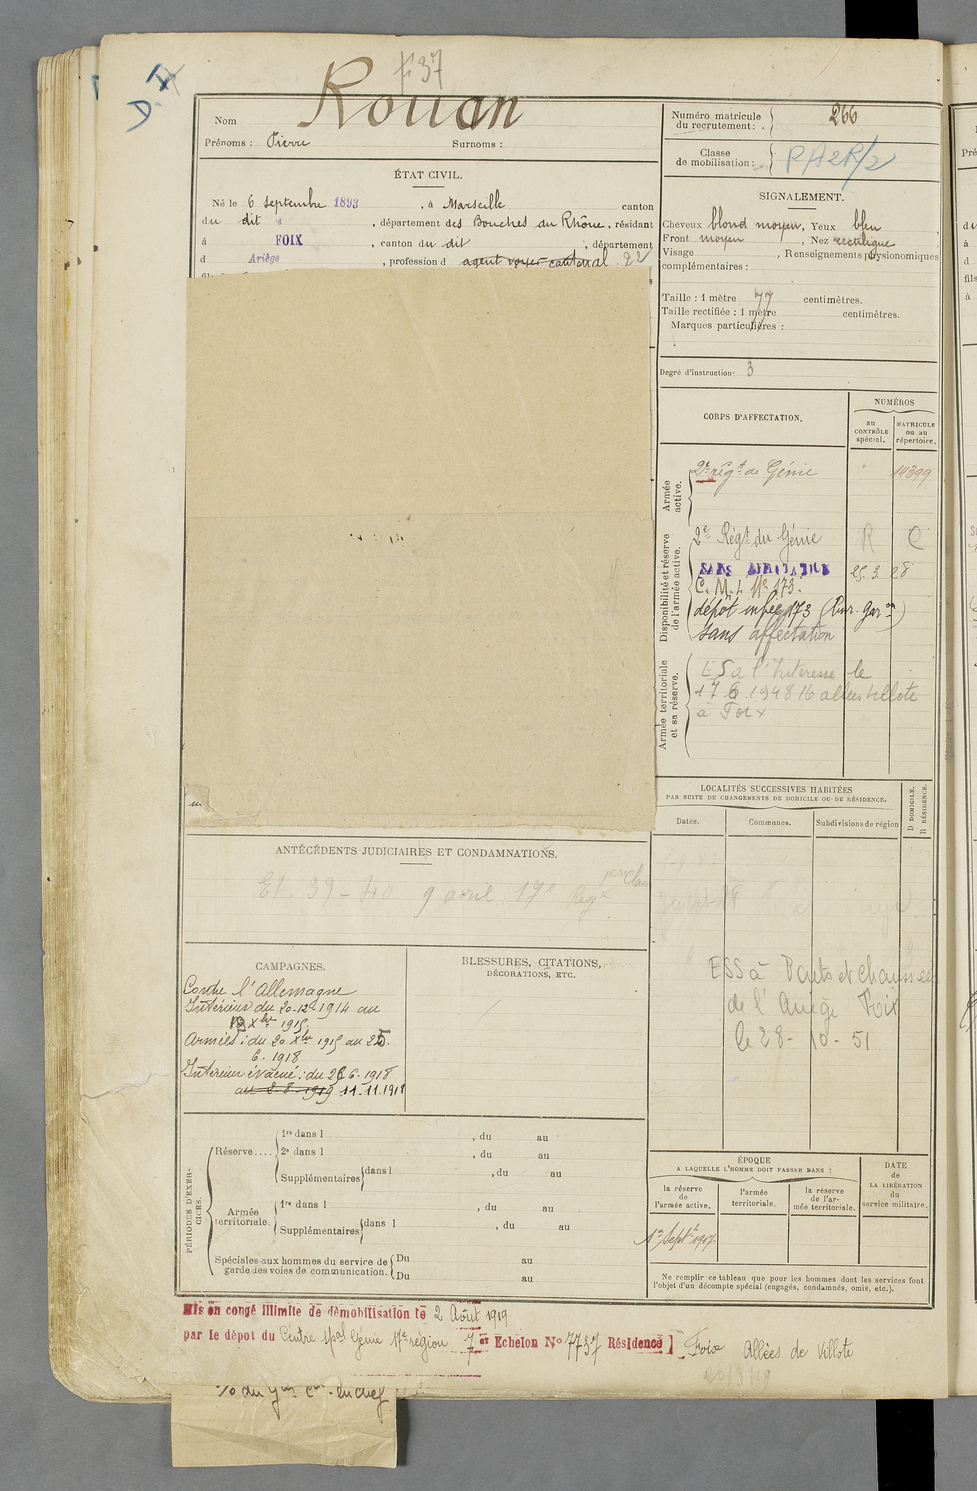 f 37
Rouan
Nom
Prénoms : Pierre Surnoms :
Numéro matricule du recrutement : 266
Classe de mobilisation : PA2R/2
ÉTAT CIVIL.
Né le 6 septembre 1893, à Marseille canton
du dit, département des Bouches du Rhône, résidant
à FOIX, canton du dit, département
d Ariège, profession d agent voyer cantonal. 22
SIGNALEMENT.
Cheveux blond moyen, Yeux bleu
Front moyen, Nez rectiligne
Visage , Renseignements physionomiques
complémentaires :
Taille : 1 mètre 77 centimètres.
Taille rectifiée : 1 mètre centimètres.
Marques particulières :
Degré d'instruction : 3
CORPS D'AFFECTATION.
NUMÉROS
au CONTRÔLE spécial.
MATRICULE ou au répertoire.
Armée active.
2e Régt de Génie 14399
Disponibilité et réserve de l'armée active.
2e Régt du Génie R C
SANS AFFECTATION 25. 3. 28
C. M. I. No 173.
dépôt infie 173 (Rur. garon)
sans affectation
Armée territoriale et sa réserve.
ESS à l'Interessé le
17 6 1948 16 allées Villote
à Foix
LOCALITÉS SUCCESSIVES HABITÉES
PAR SUITE DE CHANGEMENTS DE DOMICILE OU DE RÉSIDENCE.
Dates.
Communes.
Subdivisions de région
D DOMICILE.
R RÉSIDENCE.
ESS à Ponts et chaussées
de l'Ariège Foix
le 28 - 10 - 51
ANTÉCÉDENTS JUDICIAIRES ET CONDAMNATIONS.
Et. 39 - 40 9 avril 17e Regx
CAMPAGNES.
Contre l'Allemagne
Intérieur du 20-12-1914 au
19 Xbre 1915
Armées : du 20 Xbre 1915 au 25.
6 - 1918
Intérieur évacué : du 26 6 - 1918
au 2-8-1919 11.11.1918
BLESSURES, CITATIONS,
DÉCORATIONS, ETC.
PÉRIODES D'EXERCICES.
Réserve....
1re dans l , du au
2e dans l , du au
Supplémentaires dans l , du au
Armée territoriale.
1re dans l , du au
Supplémentaires dans l , du au
Spéciales aux hommes du service de garde des voies de communication.
Du au
Du au
ÉPOQUE
A LAQUELLE L'HOMME DOIT PASSER DANS :
la réserve de l'armée active.
l'armée territoriale.
la réserve de l'armée territoriale.
DATE de LA LIBÉRATION du service militaire.
1er Septbre 1917
Ne remplir ce tableau que pour les hommes dont les services font
l'objet d'un décompte spécial (engagés, condamnés, omis, etc.).
Mis en congé illimité de démobilisation le 2 Août 1919
par le dépôt du Centre spal Génie 17e région 7 er Echelon No 7737 Résidence Foix Allées de Villote